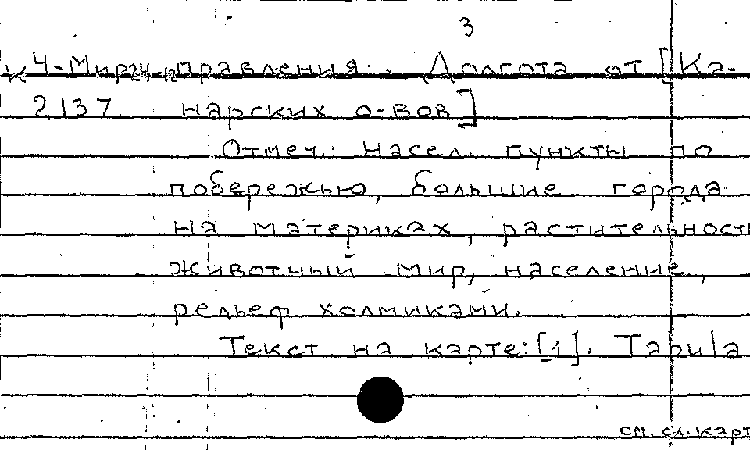 3
К 4-Мир правления. Долгота от [Ка-
2137 нарских о-вов]
Отмеч.: насел. пункты по
побережью, большие города
на материках, растительность
животный мир, население,
рельеф холмиками.
Текст на карте: [1]. Tabula
см. сл. карт